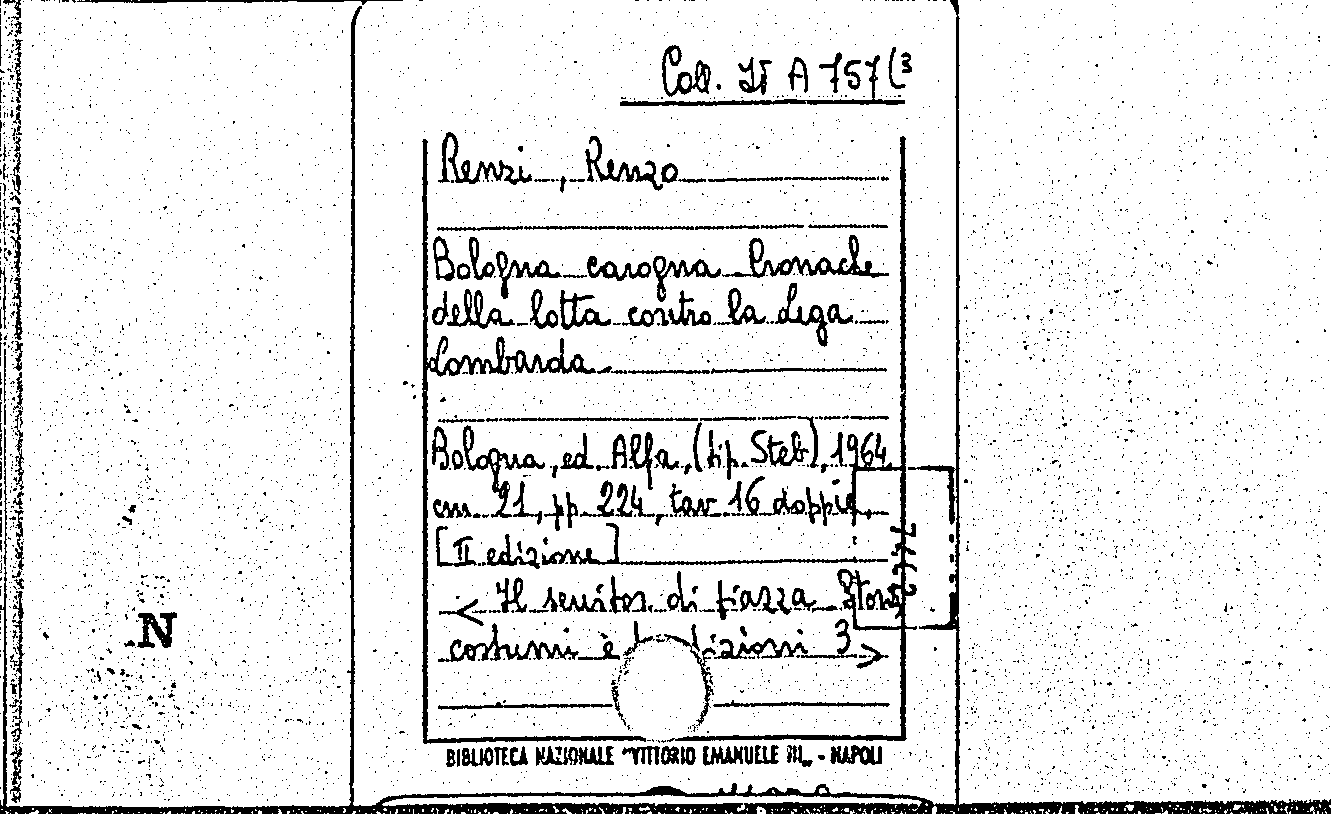 Coll. It A 757 (3
Renzi, Renzo
Bologna carogna Cronache
della lotta contro la Lega
Lombarda.
Bologna, ed. Alfa, (tip. Steb), 1964,
cm. 21, pp. 224, tav 16 doppie,
[II edizione]
< Il servitor di piazza
costumi è 3 >
N
BIBLIOTECA NAZIONALE "VITTORIO EMANUELE III„ - NAPOLI